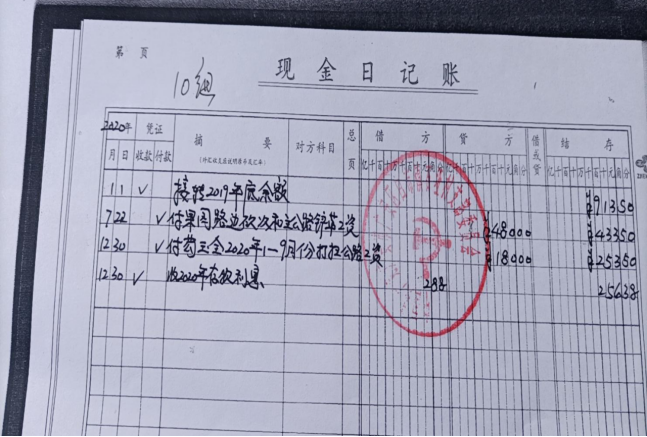 第 页
现金日记账
10组
2020年 凭证 摘要 对方科目 总页 借方 贷方 借或贷 结存
月 日 收款 付款 (外汇收支应说明原币及汇率) 亿千百十万千百十元角分 亿千百十万千百十元角分 亿千百十万千百十元角分
1 1 √ 接转2019年底余额 ¥91350
7 22 √ 付果园路边砍次和主公路锌草工资 ¥48000 ¥43350
12 30 √ 2020年1-9月份打扫公路工资 ¥18000 ¥25350
12 30 √ 收2020年存款利息 288 25638